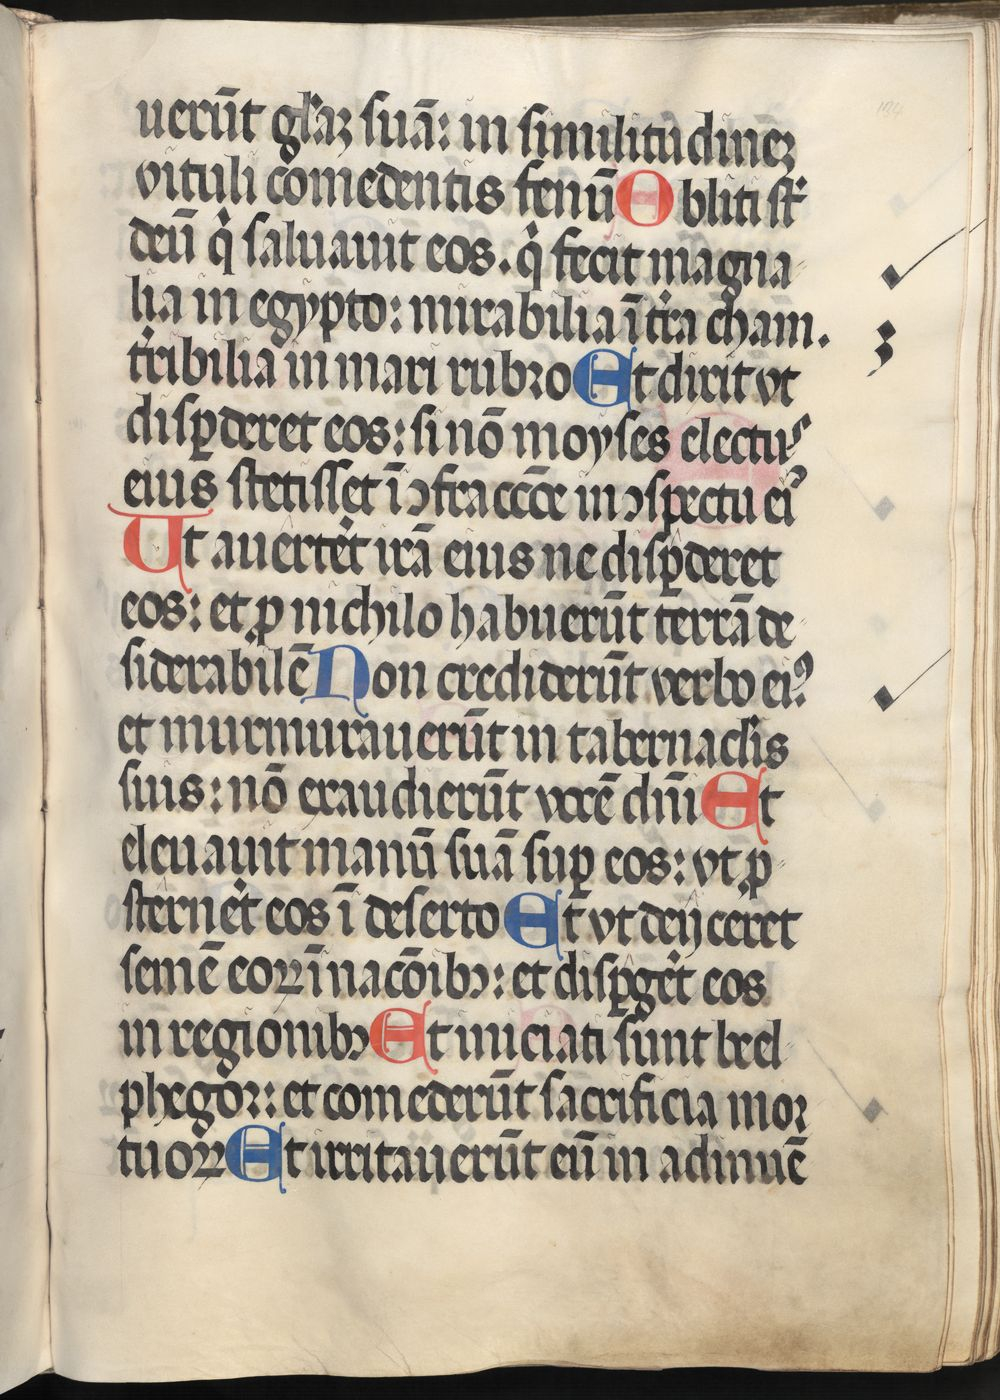 uerūt gl̄aꝫ suā: in similitudineꝫ
vituli comedentis fenū Obliti st̄
deū qͥ saluauit eos. qͥ fecit magna
lia in egypto: mirabilia ī tr̄a cham.
tr̄ibilia in mari rubro Et dixit vt
disꝑderet eos: si nō moyses electus
eius stetisset ī ꝯfraccōe in ꝯspectu eiꝰ
Ut auerter̄t irā eius ne disꝑderet
eos: et ꝓ nichilo habuerūt terrā de
siderabilē Non crediderūt verbo eiꝰ
et murmurauerūt in tabernacl̄is
suis: nō exaudierūt vocē dn̄i Et
eleuauit manū suā suꝑ eos: vt ꝓ
sterner̄t eos ī deserto Et vt deijceret
semē eoꝝ ī nacōibꝰ: et disꝑger̄t eos
in regionibꝰ Et iniciati sunt beel
phegor: et comederūt sacrificia mor
tuoꝝ Et irritauerūt eū in adinuē